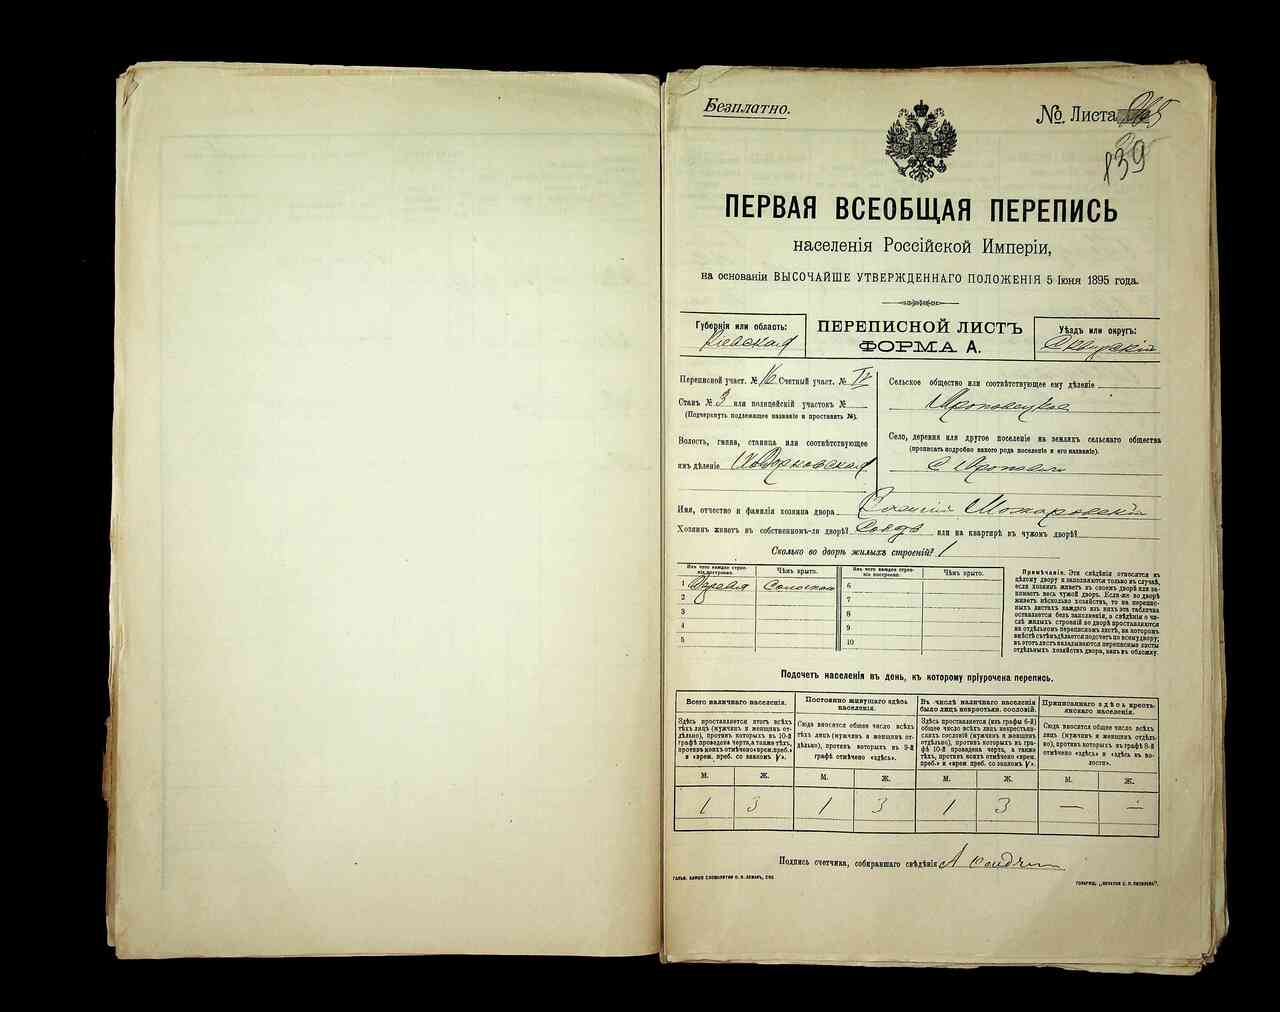 Безплатно.
№ Листа
139
ПЕРВАЯ ВСЕОБЩАЯ ПЕРЕПИСЬ
населенія Россійской Имперіи,
на основаніи ВЫСОЧАЙШЕ УТВЕРЖДЕННАГО ПОЛОЖЕНІЯ 5 Іюня 1895 года.
Губернія или область:
Кіевская
ПЕРЕПИСНОЙ ЛИСТЪ
ФОРМА А.
Уѣздъ или округъ:
Сквирскій
Переписной участ. № 16 Счетный участ. № IV
Станъ № 3 или полицейскій участокъ №
(Подчеркнуть подлежащее названіе и проставить №).
Волость, гмина, станица или соотвѣтствующее
имъ дѣленіе
Сельское общество или соотвѣтствующее ему дѣленіе
Яроповецкое
Село, деревня или другое поселеніе на земляхъ сельскаго общества
(прописать подробно какого рода поселеніе и его названіе).
с. Яроповичи
Имя, отчество и фамилія хозяина двора
Хозяинъ живетъ въ собственномъ-ли дворѣ? или на квартирѣ въ чужомъ дворѣ?
Сколько во дворѣ жилыхъ строеній? 1
Изъ чего каждое строеніе построено.
Чѣмъ крыто.
Изъ чего каждое строеніе построено.
Чѣмъ крыто.
1 Дерева Соломою 6
2 7
3 8
4 9
5 10
Примѣчаніе. Эти свѣдѣнія относятся къ
цѣлому двору и заполняются только въ случаѣ,
если хозяинъ живетъ въ своемъ дворѣ или занимаетъ
весь чужой дворъ. Если-же во дворѣ
живетъ нѣсколько хозяйствъ, то на переписныхъ
листахъ каждаго изъ нихъ эта табличка
оставляется безъ заполненія, а свѣдѣнія о числѣ
жилыхъ строеній во дворѣ проставляются
на отдѣльномъ переписномъ листѣ, на которомъ
вмѣстѣ съ тѣмъ дѣлается подсчетъ по всему двору;
въ этотъ листъ вкладываются переписные листы
отдѣльныхъ хозяйствъ двора, какъ въ обложку.
Подсчетъ населенія въ день, къ которому пріурочена перепись.
Всего наличнаго населенія.
Здѣсь проставляется итогъ всѣхъ
тѣхъ лицъ (мужчинъ и женщинъ отдѣльно),
противъ которыхъ въ 10-й
графѣ проведена черта, а также тѣхъ,
противъ коихъ отмѣчено «врем. преб.»
и «врем. преб. со знакомъ V».
Постоянно живущаго здѣсь
населенія.
Сюда вносятся общее число всѣхъ
тѣхъ лицъ (мужчинъ и женщинъ отдѣльно),
противъ которыхъ въ 9-й
графѣ отмѣчено «здѣсь».
Въ числѣ наличнаго населенія
было лицъ некрестьян. сословій.
Здѣсь проставляется (изъ графы 6-й)
общее число всѣхъ лицъ некрестьянскихъ
сословій (мужчинъ и женщинъ
отдѣльно), противъ которыхъ въ графѣ
10-й проведена черта, а также
тѣхъ, противъ коихъ отмѣчено «врем.
преб.» и «врем. преб. со знакомъ V».
Приписаннаго здѣсь крестьянскаго
населенія.
Сюда вносятся общее число всѣхъ
лицъ (мужчинъ и женщинъ отдѣльно),
противъ которыхъ въ графѣ 8-й
отмѣчено «здѣсь» и «здѣсь въ волости».
М. Ж. М. Ж. М. Ж. М. Ж.
1 3 1 3 1 3 — —
Подпись счетчика, собиравшаго свѣдѣнія